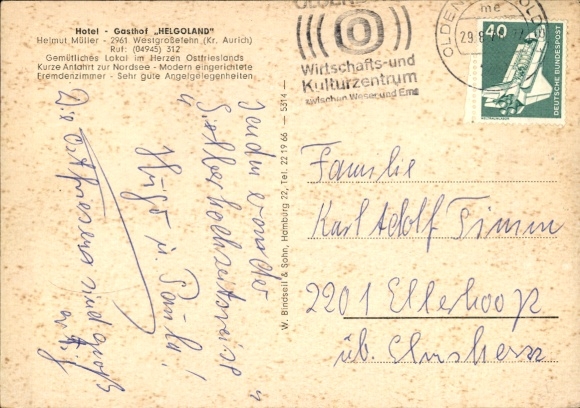 Hotel - Gasthof „HELGOLAND"
Helmut Müller - 2961 Westgroßefehn (Kr. Aurich)
Ruf: (04945) 312
Gemütliches Lokal im Herzen Ostfrieslands
Kurze Anfahrt zur Nordsee - Modern eingerichtete
Fremdenzimmer - Sehr gute Angelgelegenheiten
Wirtschafts-und
Kulturzentrum
zwischen Weser und Ems
29.8.
40
DEUTSCHE BUNDESPOST
W. Bindseil & Sohn, Hamburg 22, Tel. 22 19 66 — 5314 —
„
Hugo u. Paula!
Die Ostfriesen sind groß
Familie
Karl Adolf Timm
2201 Ellerhoop
üb. Elmshorn